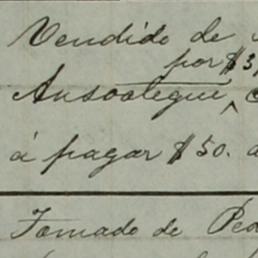 Vendido de
por $3
Ansoategui ^
á pagar $50.
Tomado de Ped